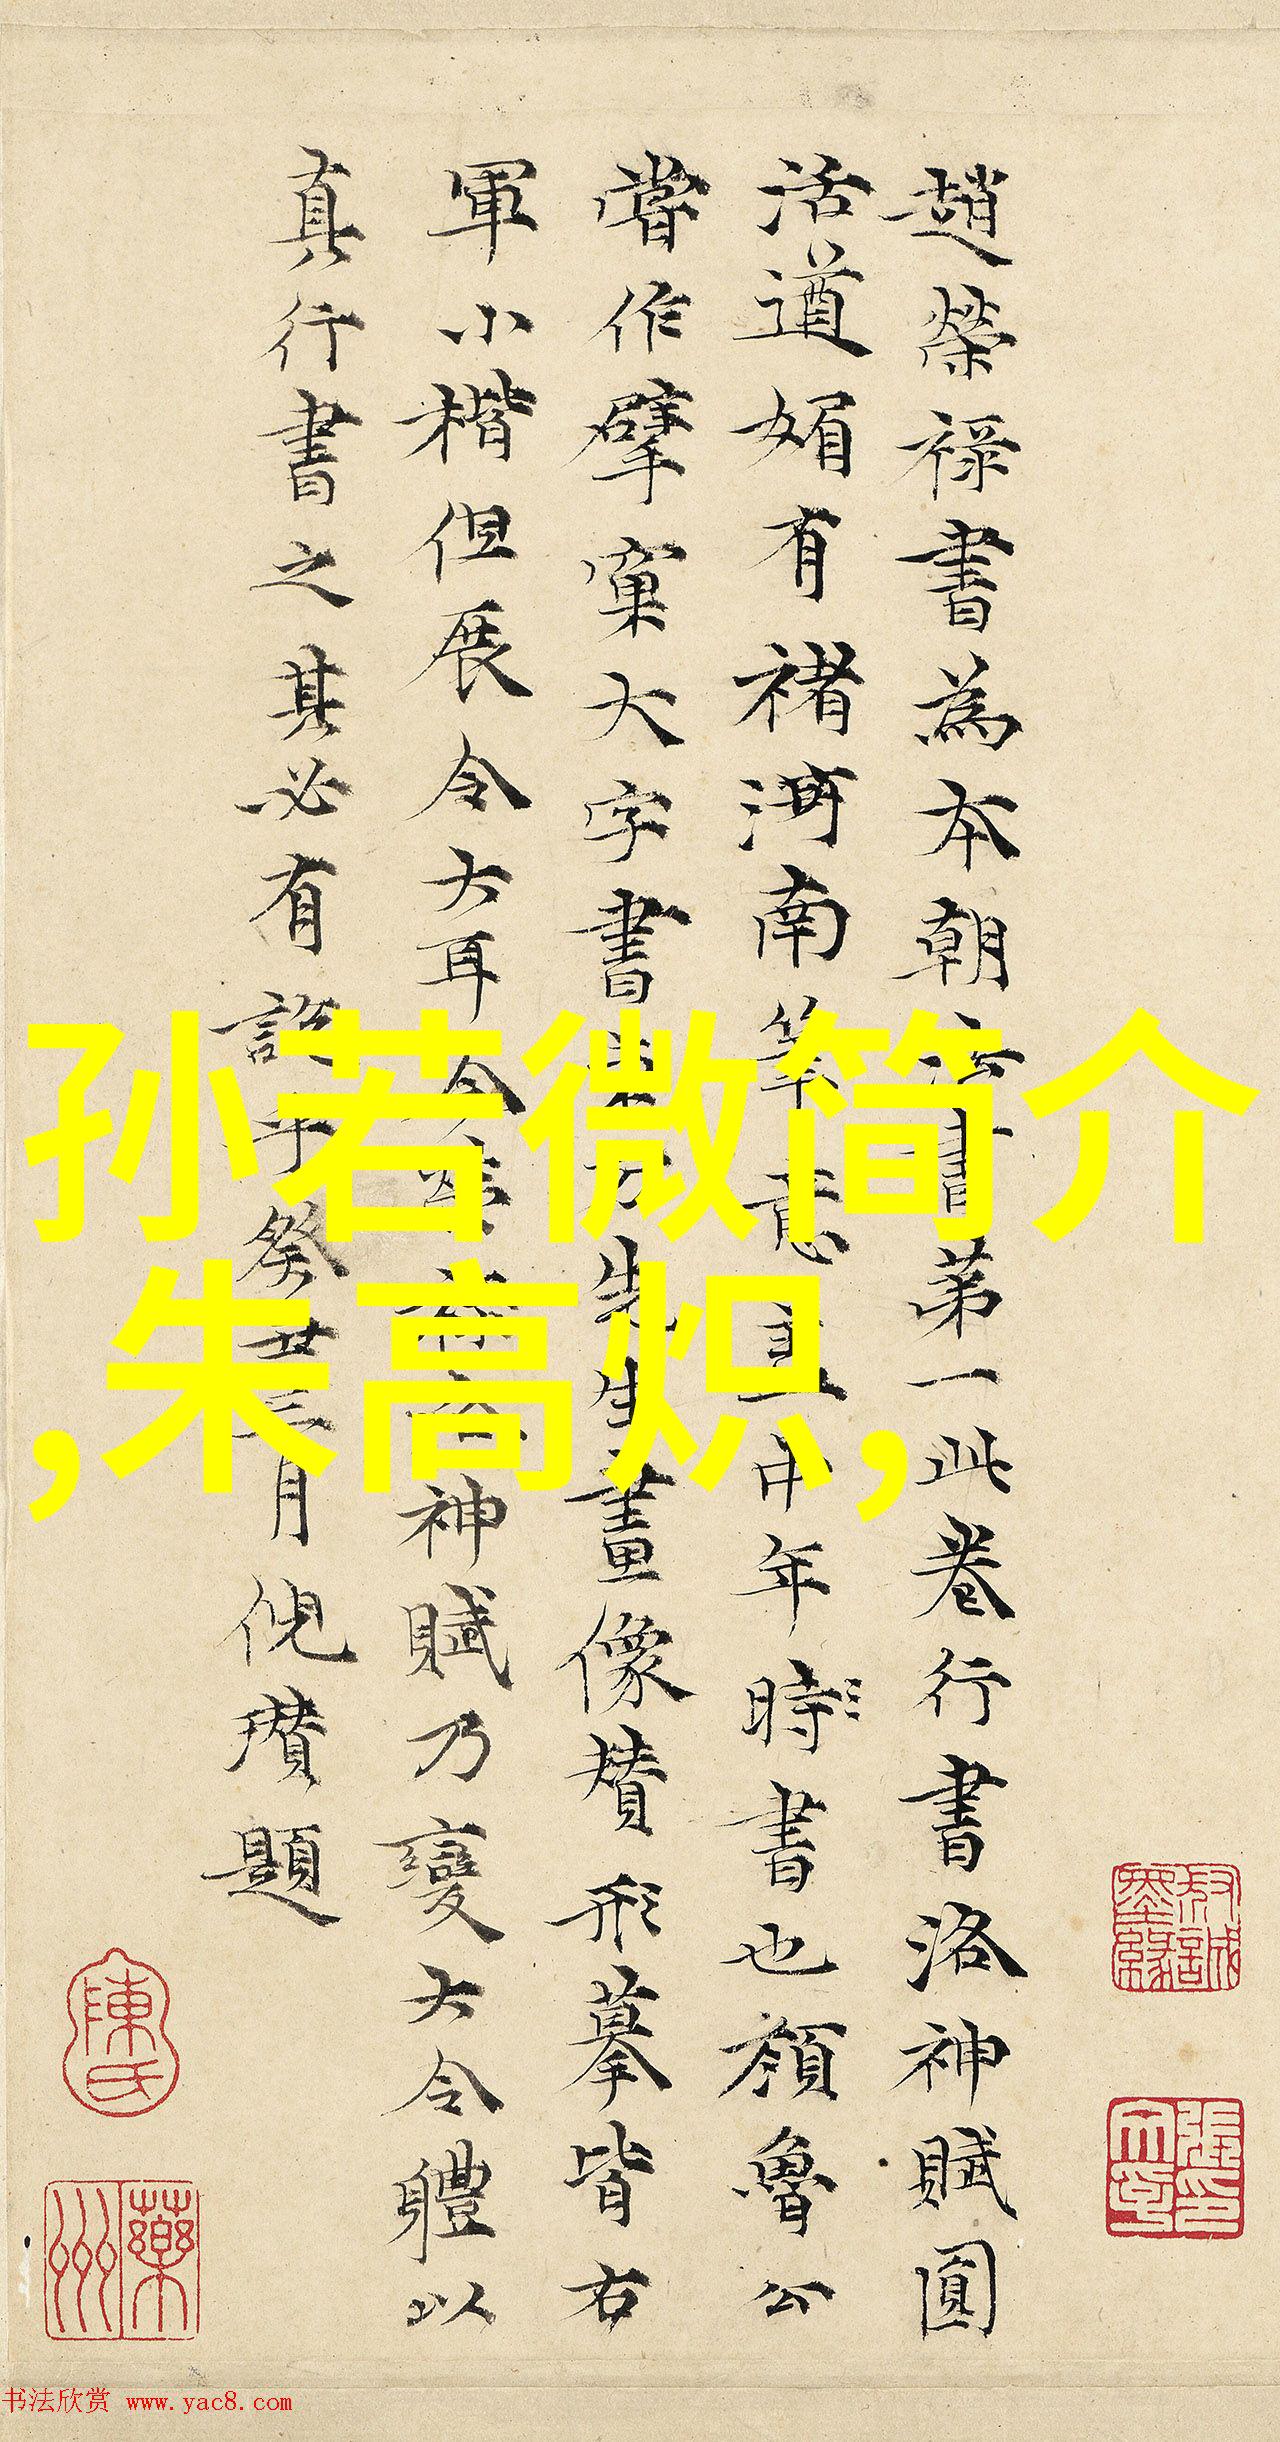 趙榮祿書為本朝法書第一此卷行書洛神賦圓
活遒媚有褚河南筆意
甲年時書也顏魯公
嘗作擘窠大字書
先生畫像贊形摹皆右
軍小楷但展令大耳今
神賦乃變大令體以
真行書之其必有
月倪瓚題
孙若微简介
,朱高炽,
陳氏
書法欣赏 www.yac8.com